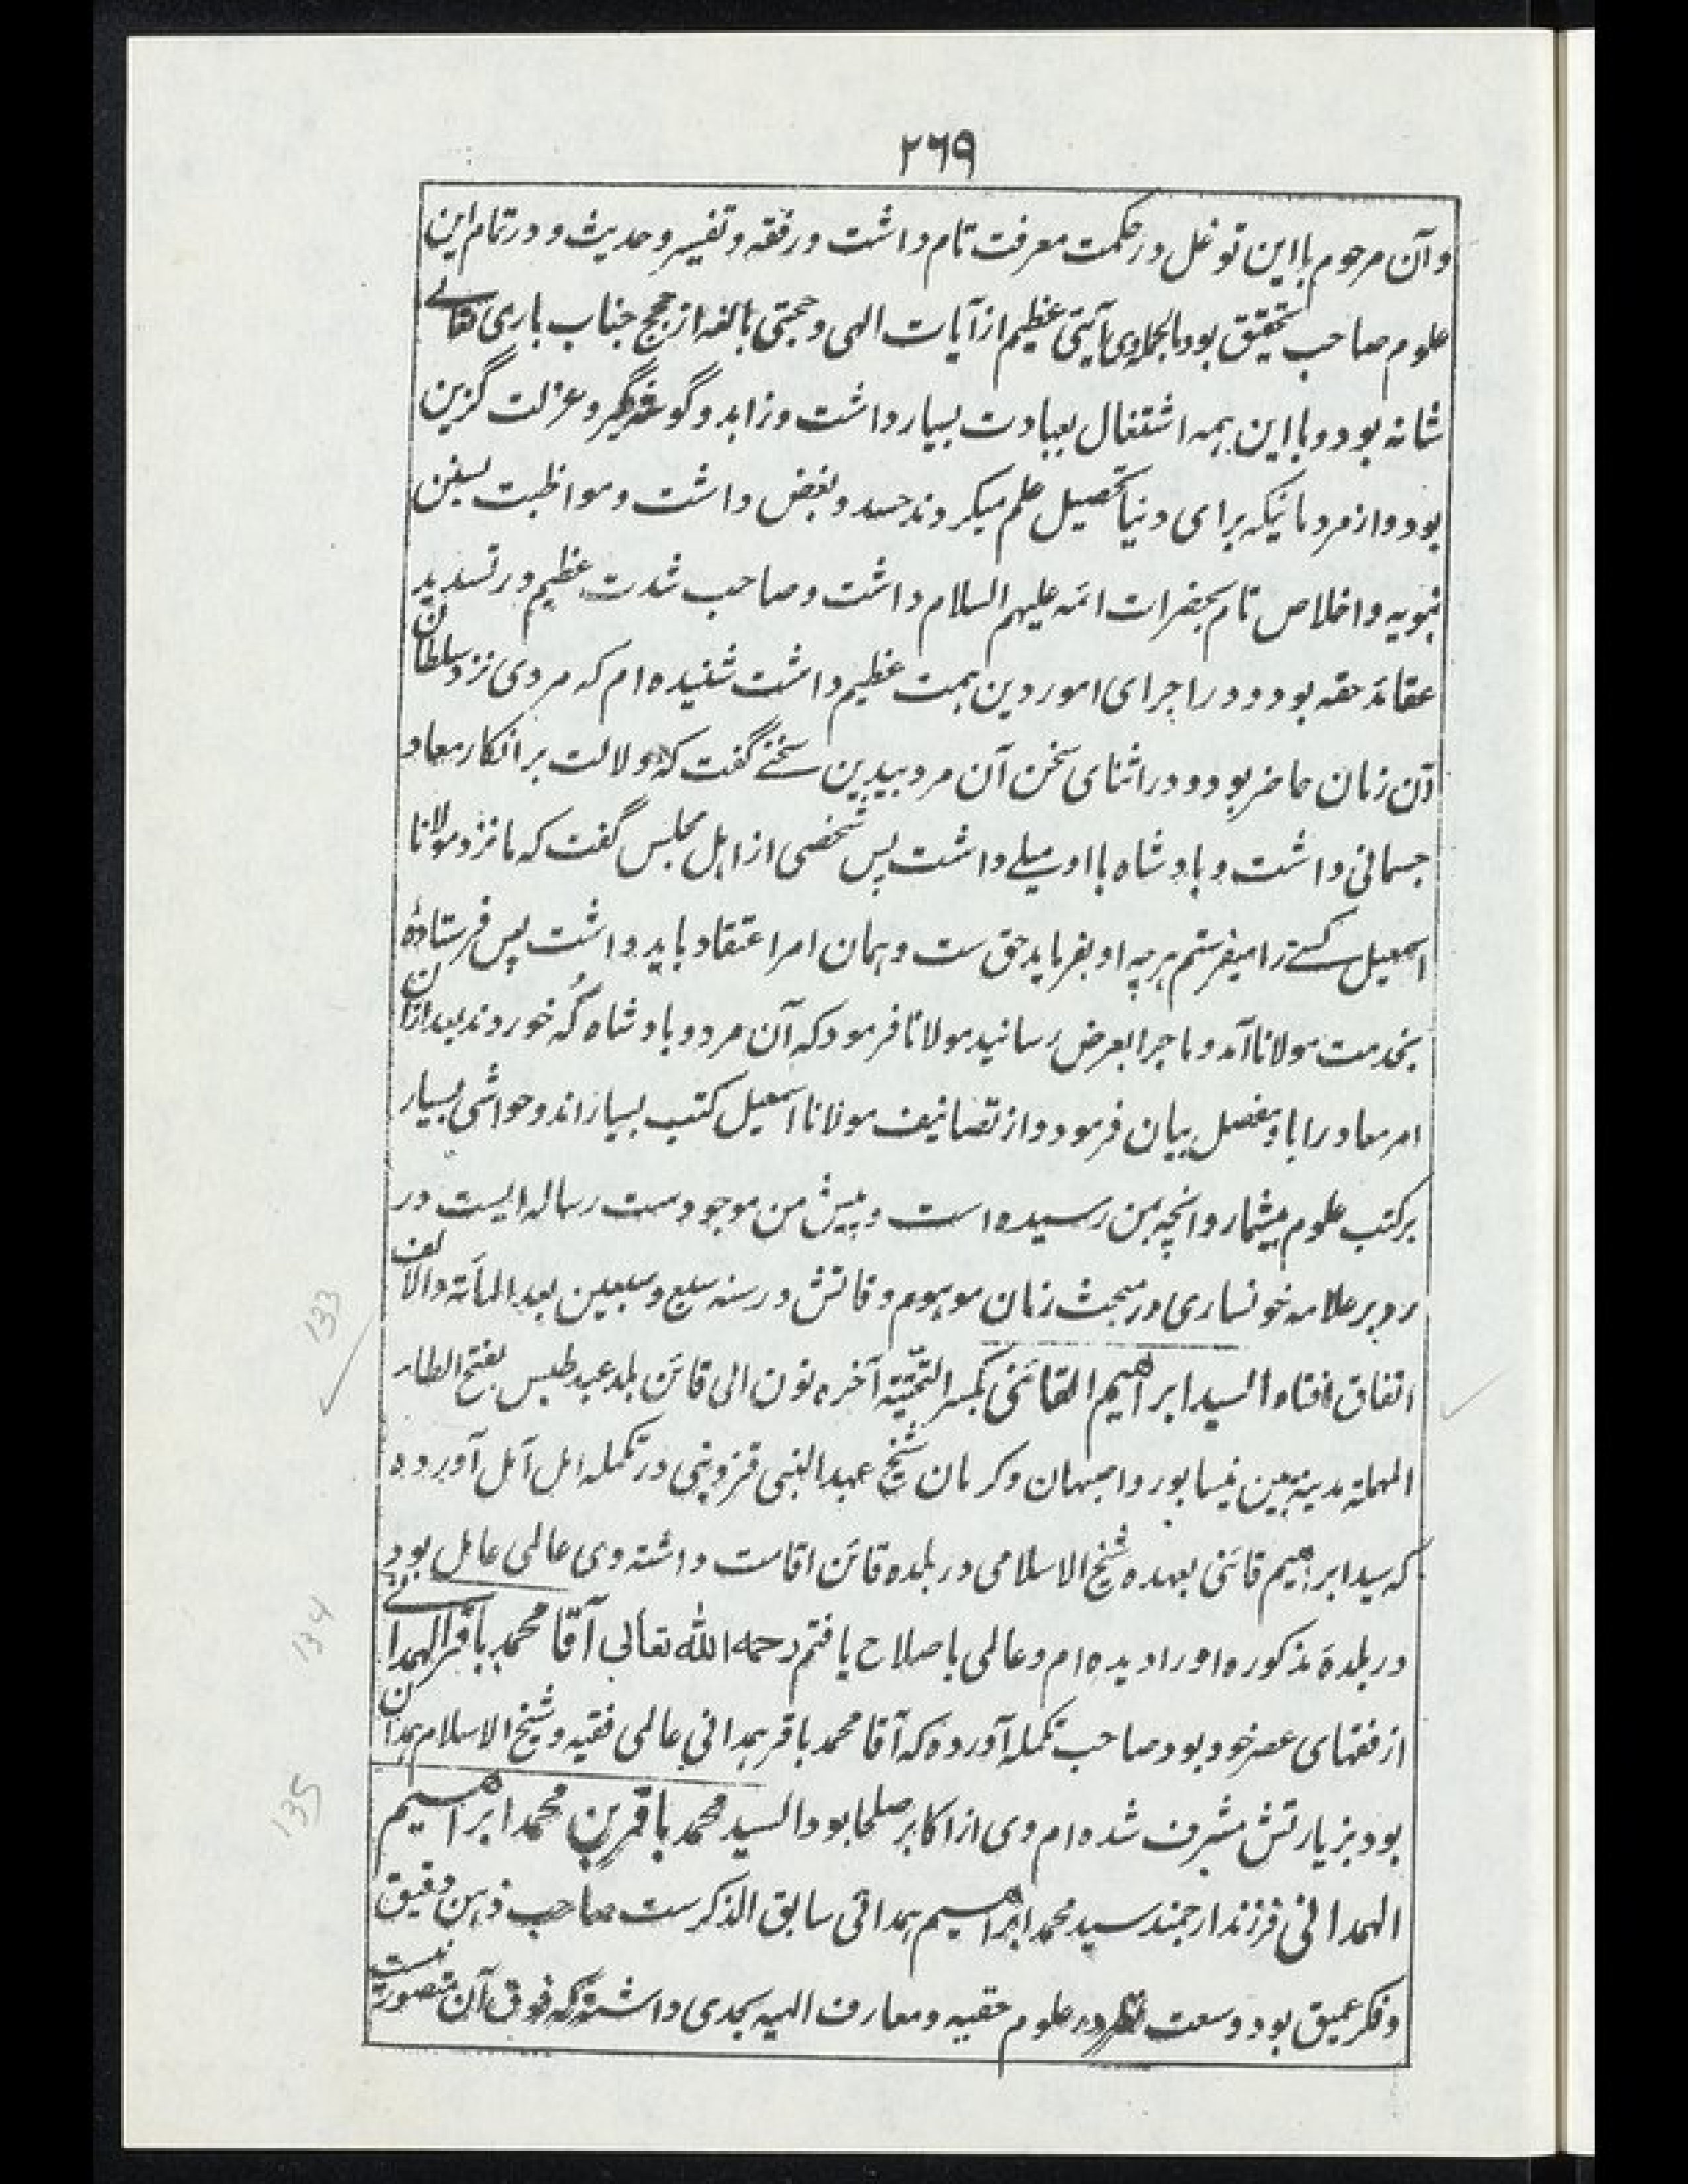 ۲۶۹
و آن مرحوم با این توغل در حکمت معرفت تام داشت در فقه و تفسیر و حدیث و در تمام این
علوم صاحب تحقیق بود بالجمله وی آیتی عظیم از آیات الهی و حجتی بالغه از حجج جناب باری تعالے
شانه بود و با این همه اشتغال بعبادت بسیار داشت و زاهد و گوشه گیر و عزلت گزین
بود و از مردمانیکه برای دنیا تحصیل علم میکردند حسد و بغض داشت و مواظبت بسنن
نبویه و اخلاص تام بحضرات ائمه علیهم السلام داشت و صاحب شدت عظیم در تسدید
عقائد حقه بود و در اجرای امور دین همت عظیم داشت شنیده ام که مردی نزد سلطان
آن زمان حاضر بود و در اثنای سخن آن مرد بیدین سخنے گفت که دلالت بر انکار معاد
جسمانی داشت و بادشاه با او میلے داشت پس شخصی از اهل مجلس گفت که ما نزد مولانا
اسمعیل کسے را میفرستم هر چه او بفرماید حق ست و همان امر اعتقاد باید داشت پس فرستاده
بخدمت مولانا آمد و ماجرا بعرض رسانید مولانا فرمود که آن مرد و بادشاه گُه خوردند بعد ازان
امر معاد را با او مفصل بیان فرمود و از تصانیف مولانا اسمعیل کتب بسیار اند و حواشی بسیار
بر کتب علوم بیشمار و آنچه بمن رسیده است و پیش من موجود ست رساله ایست در
رد بر علامه خونساری در مبحث زمان موهوم وفاتش در سنه سبع و سبعین بعد المأته والالف
اتفاق افتاد السید ابراهیم القائنی بکسر التحتیة آخره نون الی قائن بلد عبد طبس بفتح الطاء
المهملة مدینة بین نیسابور و اصبهان و کرمان شیخ عبد النبی قزوینی در تکمله امل آمل آورده
که سید ابراهیم قائنی بعهده شیخ الاسلامی در بلده قائن اقامت داشته وی عالمی عامل بود
در بلدهٔ مذکوره او را دیده ام و عالمی با صلاح یافتم رحمه الله تعالی آقا محمد باقر الهمدانے
از فقهای عصر خود بود صاحب تکمله آورده که آقا محمد باقر همدانی عالمی فقیه و شیخ الاسلام همدان
بود بزیارتش مشرف شده ام وی از اکابر صلحا بود السید محمد باقر بن محمد ابراهیم
الهمدانی فرزند ارجمند سید محمد ابراهیم همدانی سابق الذکر ست صاحب ذهن دقیق
و فکر عمیق بود وسعت نظر در علوم حقیه و معارف الهیه بحدی داشته که فوق آن متصور نیست
133
134
135